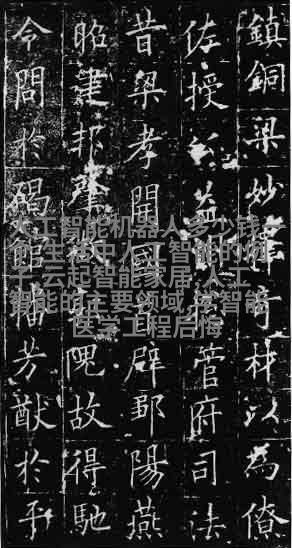 鎮銅梁妙奇材以為僚
佐授益管府司法
昔梁孝開國辟鄒陽燕
昭建邦肇隗故得馳
令問於碣館播芳猷於平
人工智能机器人多少钱
生活中人工智能的例
子,云起智能家居,人工
智能的主要领域,学智能
医学工程后悔